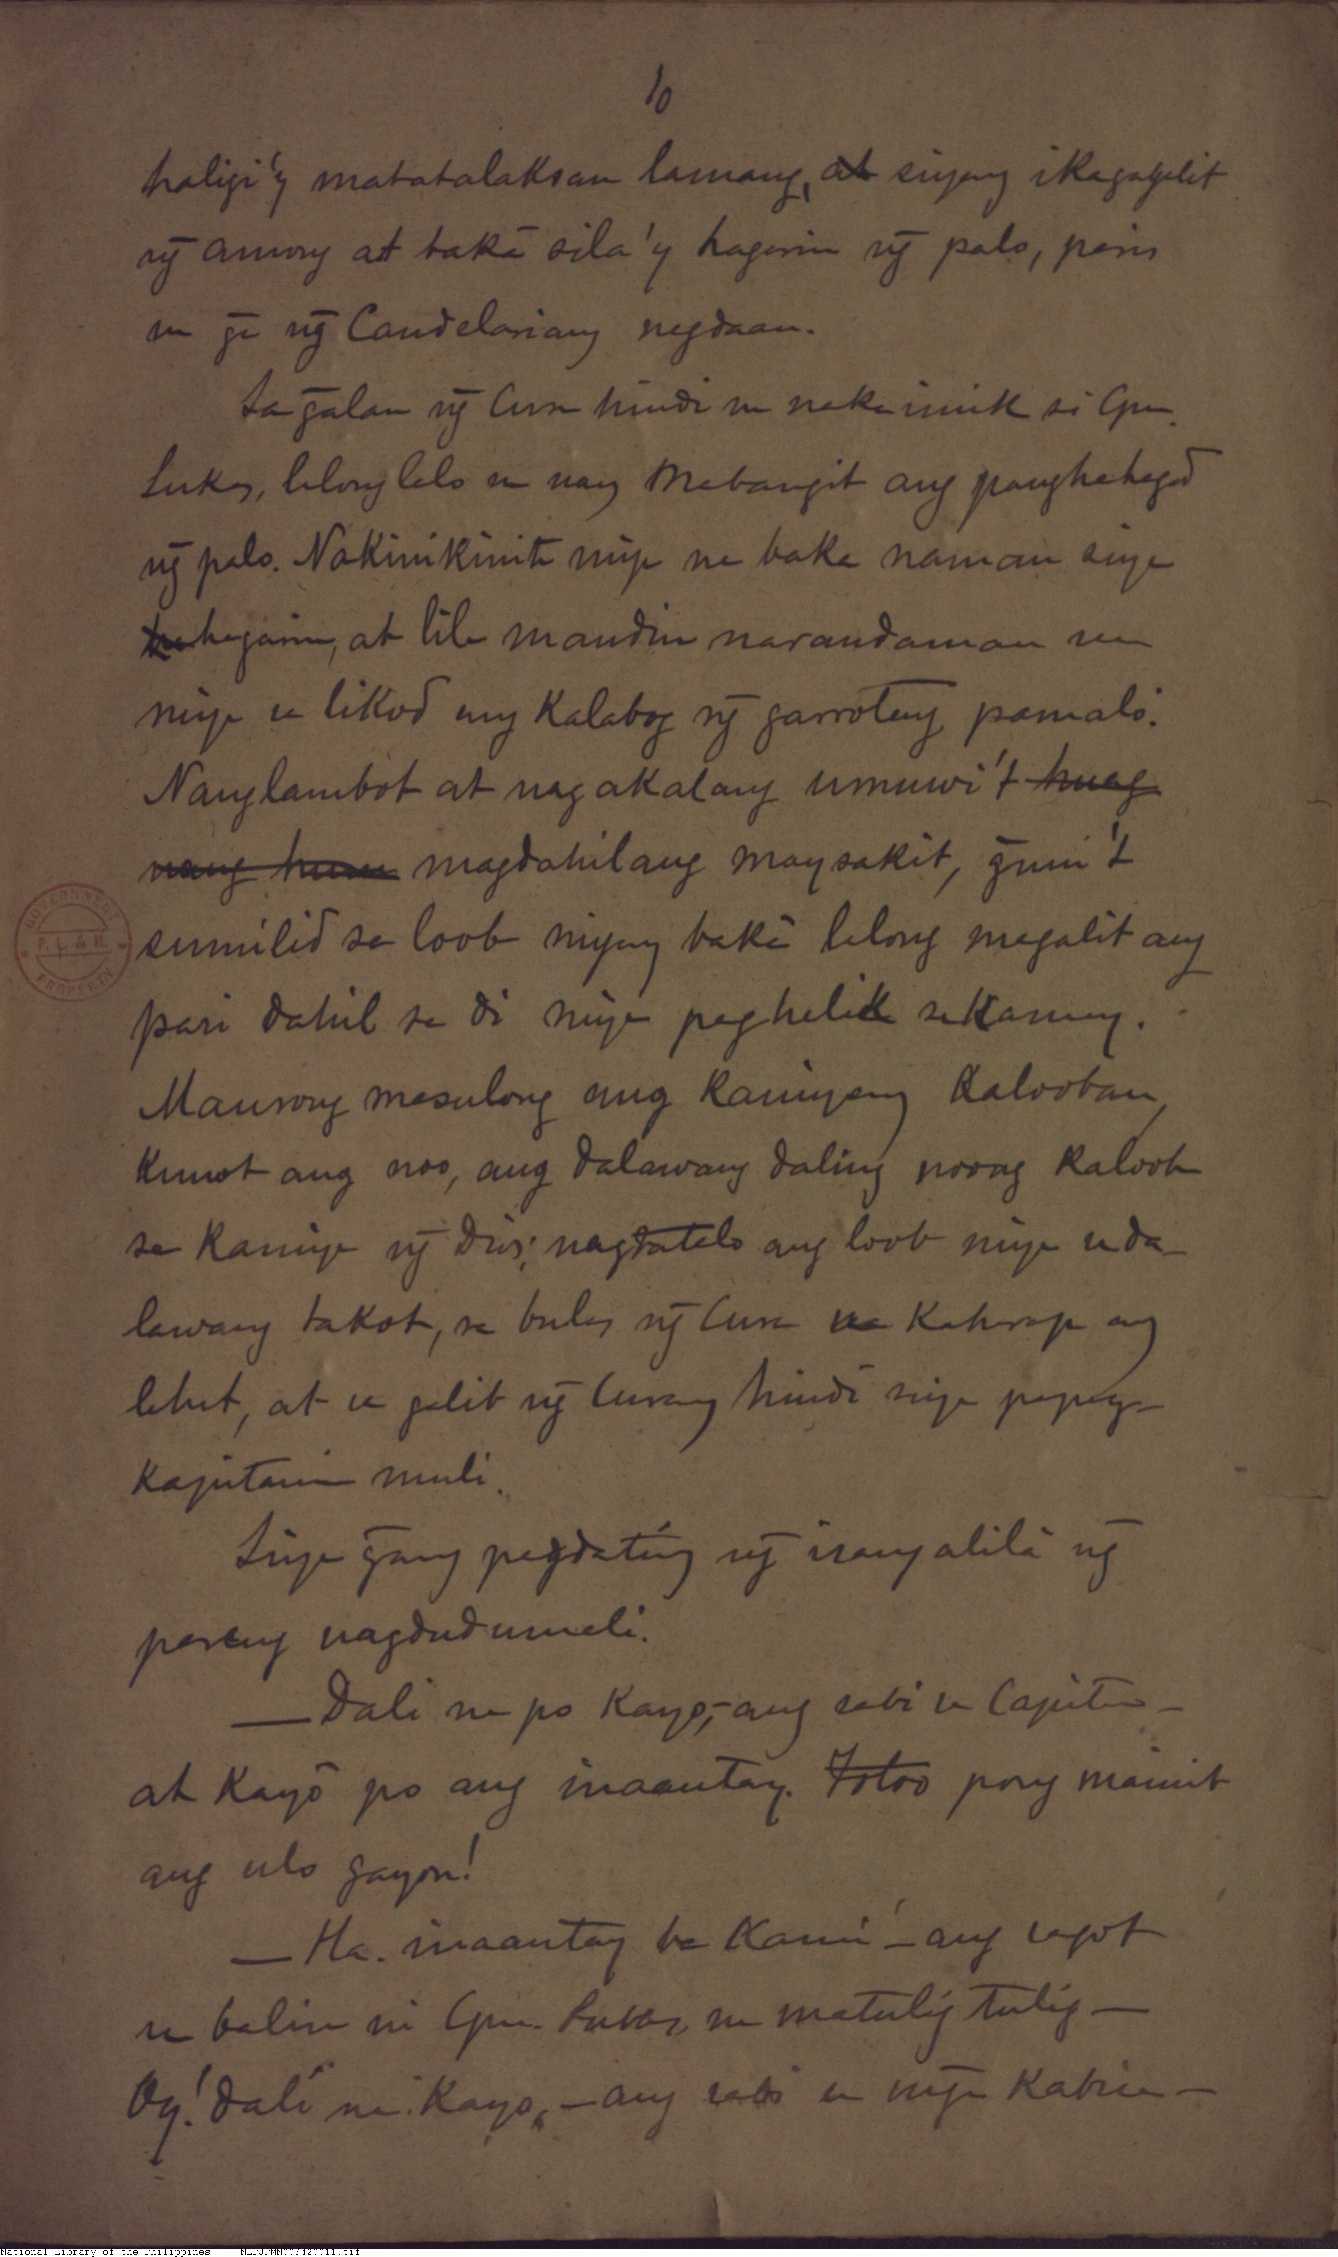 10
haligi'y matatalaksan lamang, at siyang ikagagalit
ng̃ among at baká sila'y hagarin ng̃ palo, paris
na g̃a ng̃ Candelariang nagdaan.
Sa g̃alan ng̃ Cura hindi na nakaimik si Cpn.
Lukas, lalong lalo na nang mabangit ang panghahagad
ng̃ palo. Nakinikinitá niya na baka naman siya
hagarin, at tila mandin narandaman na
niya sa likod ang kalabog ng̃ garroteng pamalo.
Nanglambot at nagakalang umuwi't huag
nang magdahilang maysakit, g̃uni't
sumilid sa loob niyang baká lalong magalit ang
pari dahil sa di niya paghalik sa kamay.
Maurong masulong ang kaniyang kalooban,
kunot ang noo, ang dalawang daling noong kaloob
sa kaniya ng̃ Dios; nagtatalo ang loob niya sa da-
lawang takot, sa bulas ng̃ Cura na kaharap ang
lahat, at sa galit ng̃ Curang hindi siya papag-
kapitanin muli.
Siya g̃ang pagdatíng ng̃ isang alilà ng̃
pareng nagdudumali.
—Dali na po kayo,—ang sabi sa Capitan—
at kayó po ang inaantay. Totoo pong mainit
ang ulo g̃ayon!
—Ha. inaantay ba kamí—ang sagot
na balisa ni Cpn. Lukas, na matulig tulig—
Oy! dalí na kayo,—ang sabi sa mg̃a kabisa—
GOVERNMENT
P. L. & M.
PROPERTY
National Library of the Philippines